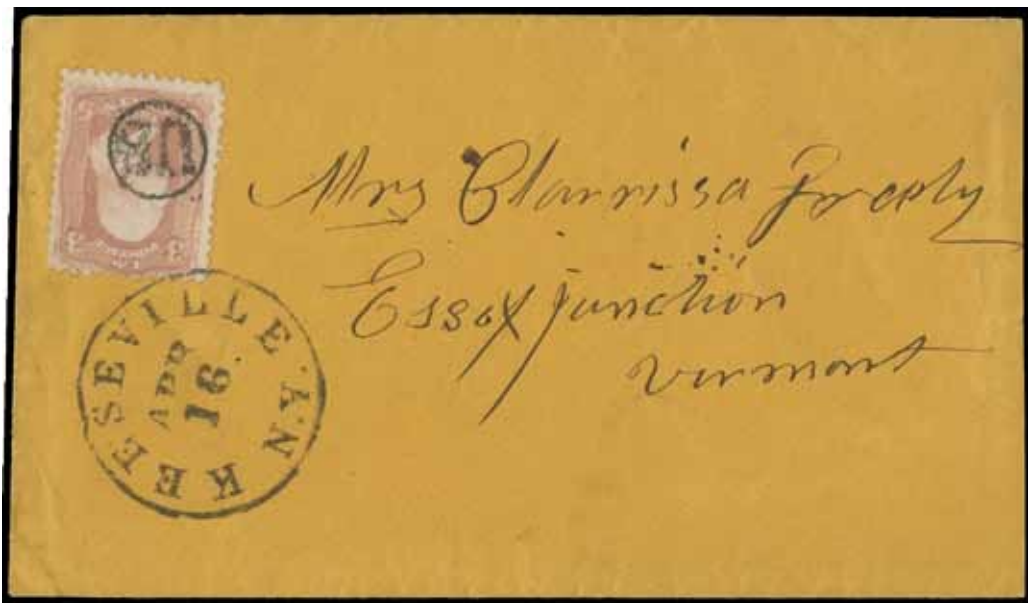 US
KEESEVILLE N.Y.
APR
16.
Mrs Clarrissa
Essex junction
Vermont